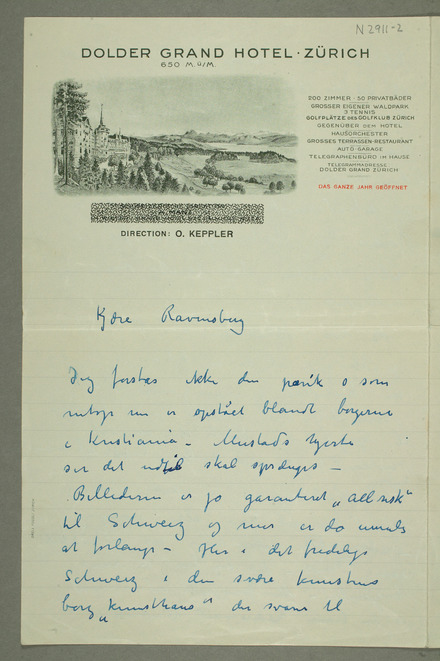 N 2911-2
DOLDER GRAND HOTEL · ZÜRICH
650 M. Ü/M.
200 ZIMMER · 50 PRIVATBÄDER
GROSSER EIGENER WALDPARK
3 TENNIS
GOLFPLÄTZE DES GOLFKLUB ZÜRICH
GEGENÜBER DEM HOTEL
HAUSORCHESTER
GROSSES TERRASSEN-RESTAURANT
AUTO-GARAGE
TELEGRAPHENBÜRO IM HAUSE
TELEGRAMMADRESSE
DOLDER GRAND ZÜRICH
DAS GANZE JAHR GEÖFFNET
DIRECTION: O. KEPPLER
Kjære Ravensberg
Jeg forstår ikke den panik o som
netop nu er opstået blandt borgerne
i Kristiania – Mustads hjerte
ser det ud til skal sprænges –
Billederne er jo garanteret „all risk"
til Schweiz og mer er da umulig
at forlange – Her i det fredelige
Schweiz i den svære kunstens
borg „Kunsthaus" der svarer til